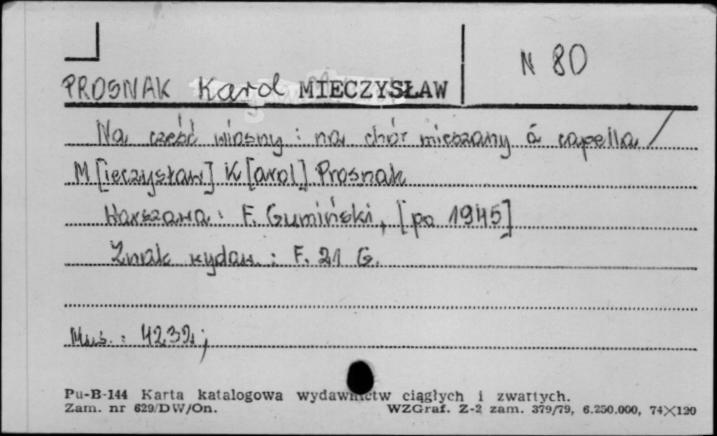 N 80
PROSNAK Karol MIECZYSŁAW
Na cześć wiosny : na chór mieszany á capella /
M[ieczysław] K[arol] Prosnak
Warszawa : F. Gumiński, [po 1945]
Znak wydaw. : F. 21 G.
Mus. : 4232;
Pu-B-144 Karta katalogowa wydawnictw ciągłych i zwartych.
Zam. nr 629/DW/On. WZGraf. Z-2 zam. 379/79, 6.250.000, 74×120